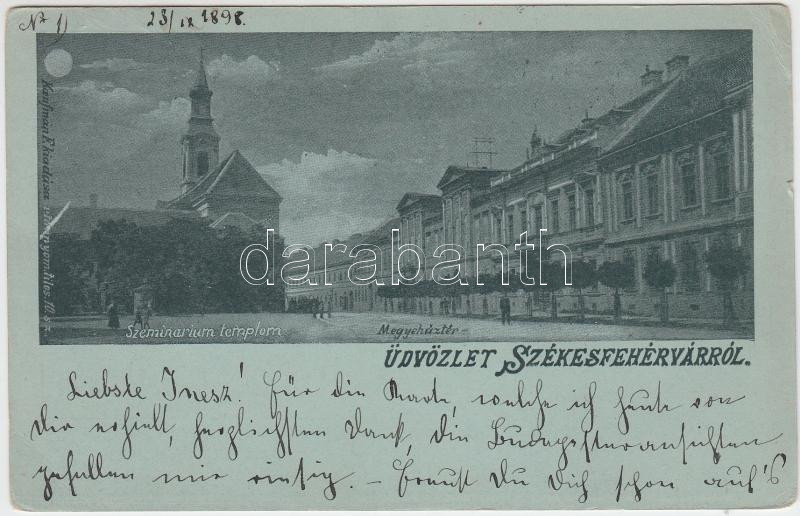 No 1)
23/IX 1898.
Kaufman F. kiadása
Szeminarium templom
Megyeháztér
ÜDVÖZLET SZÉKESFEHÉRVÁRRÓL.
darabanth
Liebste Inesz! Für die Karte, welche ich heute von
Dir erhielt, herzlichsten Dank, die Budapesteransichten
gefallen mir riesig. – Freust Du Dich schon auf's